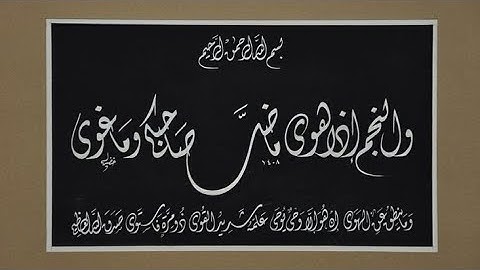 بسم الله الرحمن الرحيم
والنجم إذا هوى ما ضل صاحبكم وما غوى
١٤٠٨
وما ينطق عن الهوى إن هو إلا وحي يوحى علمه شديد القوى ذو مرة فاستوى صدق الله العظيم